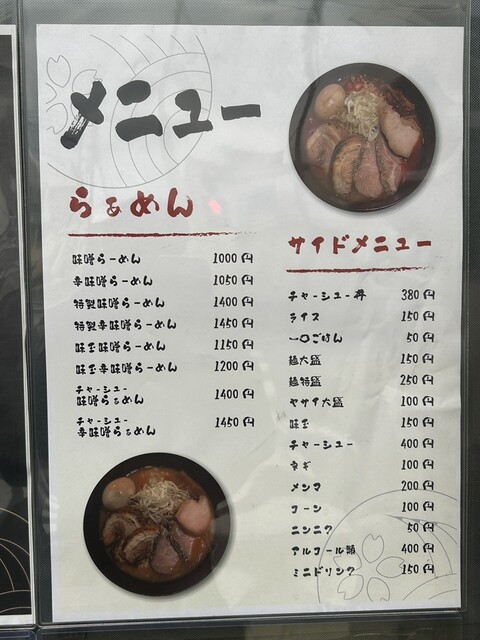 メニュー
らぁめん
味噌らーめん 1000円
辛味噌らーめん 1050円
特製味噌らーめん 1400円
特製辛味噌らーめん 1450円
味玉味噌らーめん 1150円
味玉辛味噌らーめん 1200円
チャーシュー
味噌らぁめん 1400円
チャーシュー
辛味噌らぁめん 1450円
サイドメニュー
チャーシュー丼 380円
ライス 150円
一口ごはん 50円
麺大盛 150円
麺特盛 250円
ヤサイ大盛 100円
味玉 150円
チャーシュー 400円
ネギ 100円
メンマ 200円
コーン 100円
ニンニク 50円
アルコール類 400円
ミニドリンク 150円